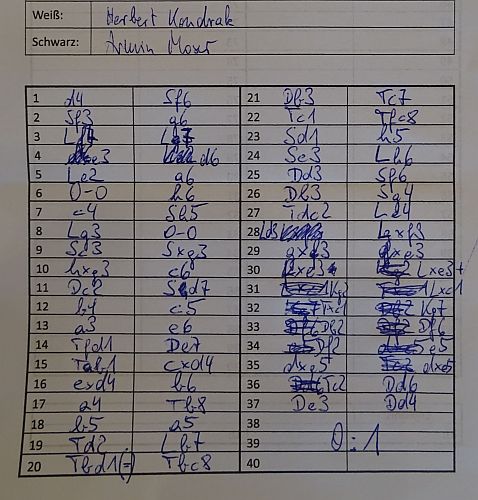 Weiß: Herbert Kondrak
Schwarz: Armin Moser
1 d4 Sf6
2 Sf3 g6
3
4 e3 d6
5 Le2 a6
6 0-0 h6
7 c4 Sh5
8 Lg3 0-0
9 Sc3 Sxg3
10 hxg3 c6
11 Dc2 Sd7
12 b4 c5
13 a3 e6
14 Tfd1 De7
15 Tab1 cxd4
16 exd4 b6
17 a4 Tb8
18 b5 a5
19 Td2 Lb7
20 Tbd1(=) Tbc8
21 Db3 Tc7
22 Tc1 Tfc8
23 Sd1 h5
24 Se3 Lh6
25 Dd3 Sf6
26 Db3 Sg4
27 Tdc2 Le4
28 Ld3 Lxf3
29 gxf3 dxe3
30 fxe3 Lxe3+
31 Kg2 Lxc1
32 Txc1 Kg7
33 Db2 Df6
34 Df2 e5
35 dxe5 dxe5
36 Tc2 Dd6
37 De3 Dd4
38
39 0:1
40